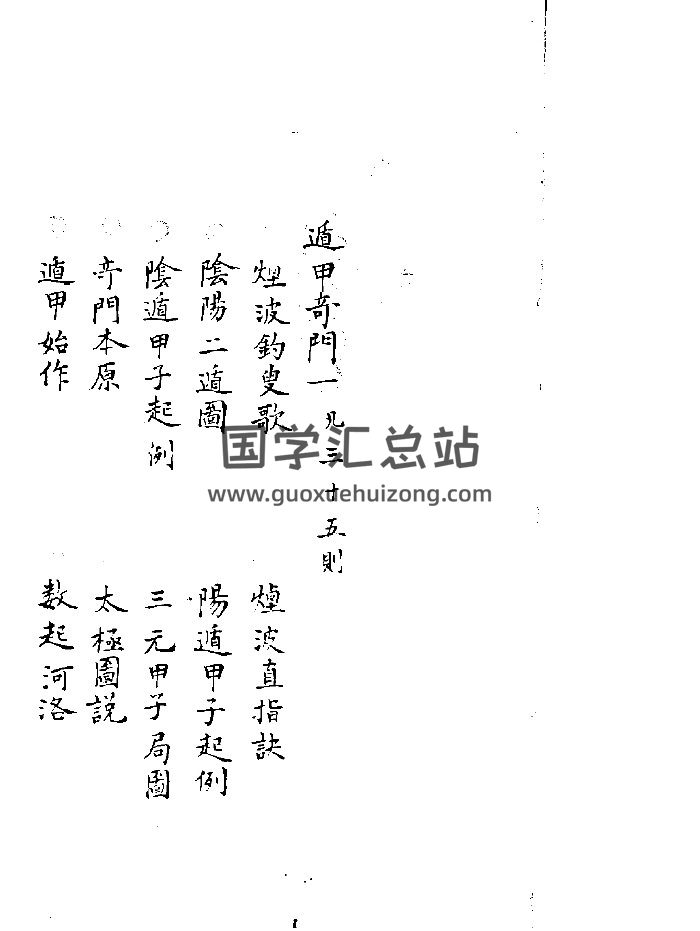 遁甲奇門一 凡三十五則
煙波釣叟歌
煙波直指訣
陰陽二遁圖
陽遁甲子起例
陰遁甲子起例
三元甲子局圖
奇門本原
太極圖説
遁甲始作
数起河洛
国学汇总站
www.guoxuehuizong.com